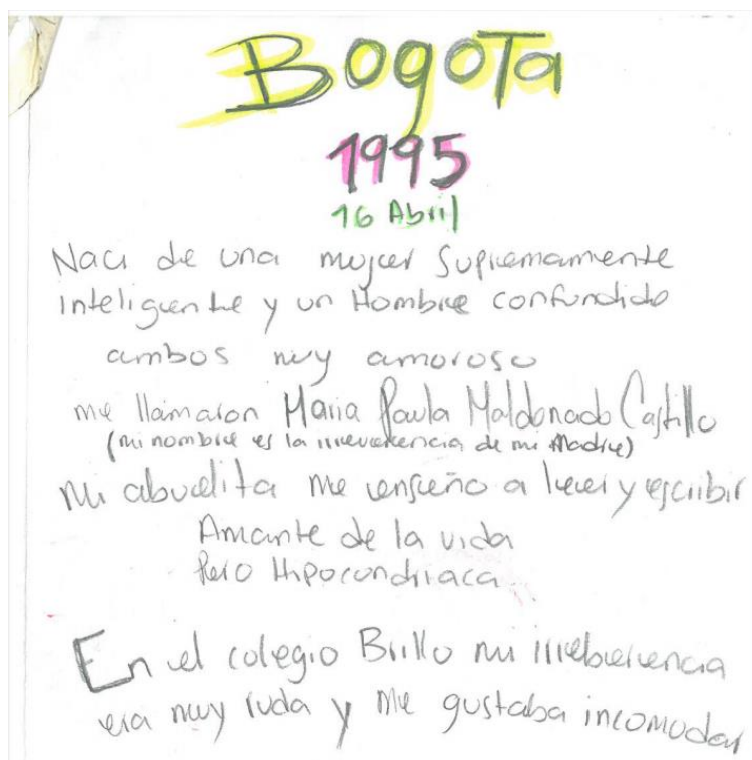 Bogota
1995
16 Abril
Naci de una mujer supremamente
inteligente y un Hombre confundido
ambos muy amoroso
me llamaron Maria Paula Maldonado Castillo
(mi nombre es la irreverencia de mi Madre)
Mi abuelita me enseño a leer y escribir
Amante de la vida
Pero Hipocondriaca
En el colegio Brillo mi irreberencia
era muy ruda y me gustaba incomodar